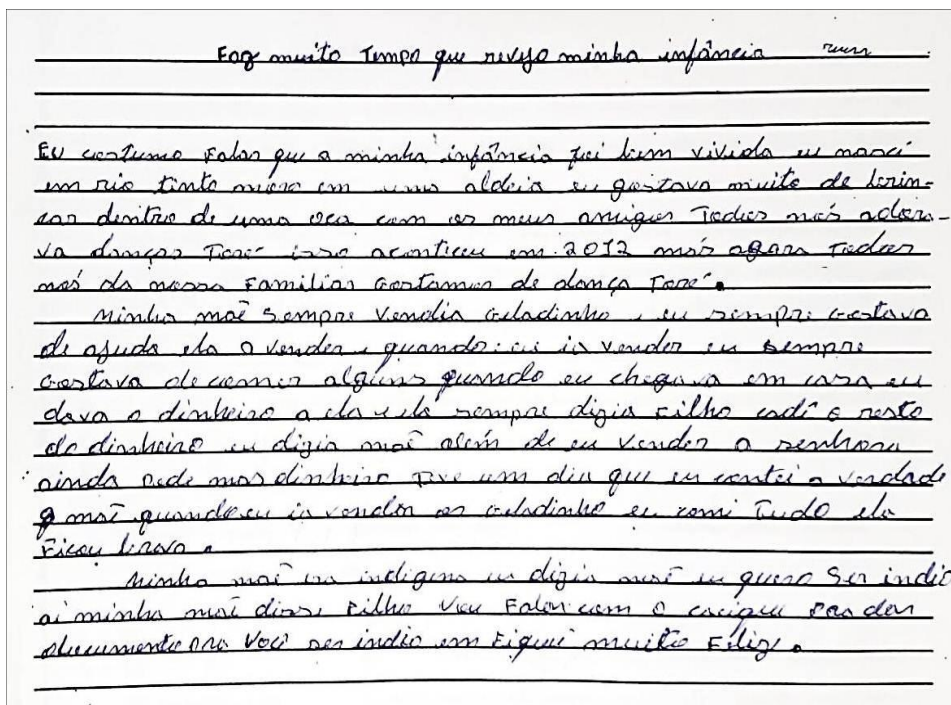 Faz muito Tempo que revejo minha infância
EU costumo Falar que a minha infância foi bem vivida eu nasci
em rio tinto moro em uma aldeia eu gostava muito de brin-
car dentro de uma oca com os meus amigos Todos nós adora-
va danças Toré isso aconteceu em 2012 mais agora Todos
nós da nossa Familias Gostamos de dança Toré.
Minha maẽ sempre vendia Geladinho, eu sempre Gostava
de ajuda ela a vender e quando eu ia vender eu sempre
Gostava de comer alguns quando eu chegava em casa eu
dava o dinheiro a ela e ela sempre dizia Filho cadê o resto
do dinheiro eu dizia maẽ além de eu vender a senhora
ainda pede mas dinheiro Teve um dia que eu contei a verdade
maẽ quando eu ia vender os Geladinho eu comi Tudo ela
Ficou brava.
Minha maẽ era indigena eu dizia maẽ eu quero Ser indio
ai minha maẽ disse Filho Vou Falar com o cacique
documento pra Você ser indio Fiquei muito Feliz.